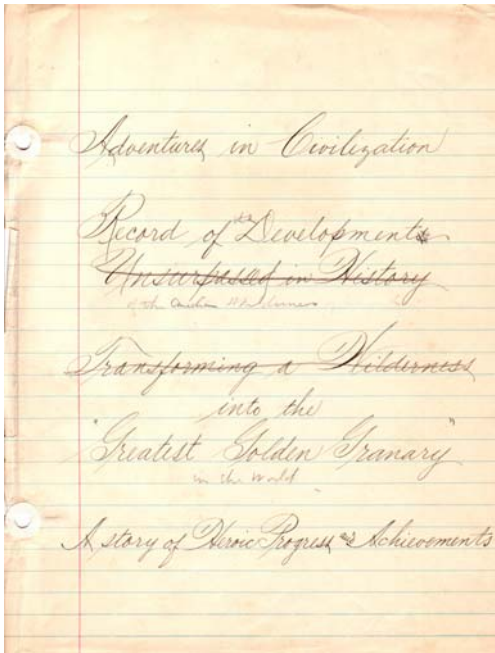 Adventures in Civilization
Record of the Developments
Unsurpassed in History
of the Canadian Wilderness
Transforming a Wilderness
into the
"Greatest Golden Granary"
in the World
A story of Heroic Progress and Achievements